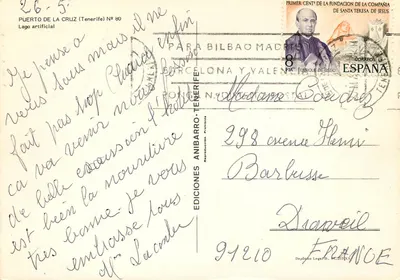 26-5
PUERTO DE LA CRUZ (Tenerife) Nº 80
Lago artificial
Je pense a
vous tous mais il ne
fait pas trop chaud enfin
ça va venir nous
de belle excursion l'
est bien la nourriture
très bonne je vous
embrasse tous
Mme
EDICIONES ANIBARRO-TENERIFE
PRIMER CENTº DE LA FUNDACION DE LA COMPAÑIA
DE SANTA TERESA DE JESUS
8
CORREOS
ESPAÑA
PARA BILBAO MADRID
BARCELONA Y VALENCIA
Madame
298 avenue Henri
Barbusse
Draveil
91210 FRANCE